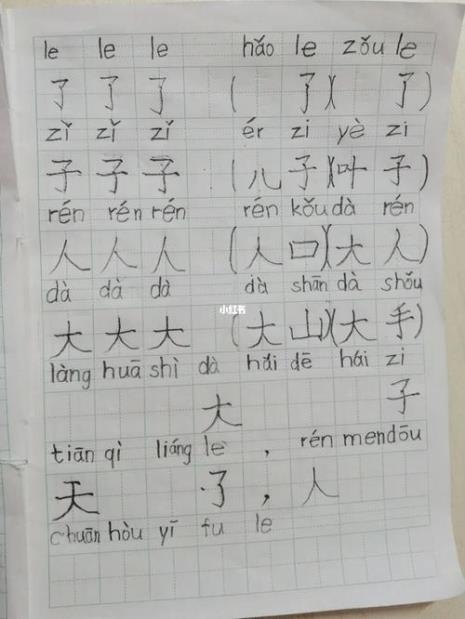 le le le hǎo le zǒu le
了 了 了 ( 了)( 了)
zǐ zǐ zǐ ér zi yè zi
子 子 子 (儿 子)(叶 子)
rén rén rén rén kǒu dà rén
人 人 人 (人 口)(大 人)
dà dà dà dà shān dà shǒu
大 大 大 (大 山)(大 手)
小红书
làng huā shì dà hǎi dē hái zi
大 子
tiān qì liáng le , rén men dōu
天 了 , 人
chuān hòu yī fu le